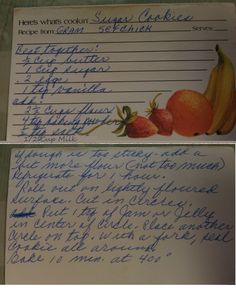 Here's what's cookin' Sugar Cookies
Recipe from: GRAM SETCHICK Serves
Beat together:
1 cup sugar
2 eggs
1 tsp vanilla
add:
2 ¾ cups flour
tsp baking powder
tsp salt
1/2 Cup Milk
If dough is too sticky add a
bit more flour (not too much)
Refrigerate for 1 hour.
Roll out on lightly floured
surface. Cut in circles.
Put 1 tsp of Jam or Jelly
in center of circle. Place another
circle on top. With a fork, seal
cookie all around
Bake 10 min. at 400°